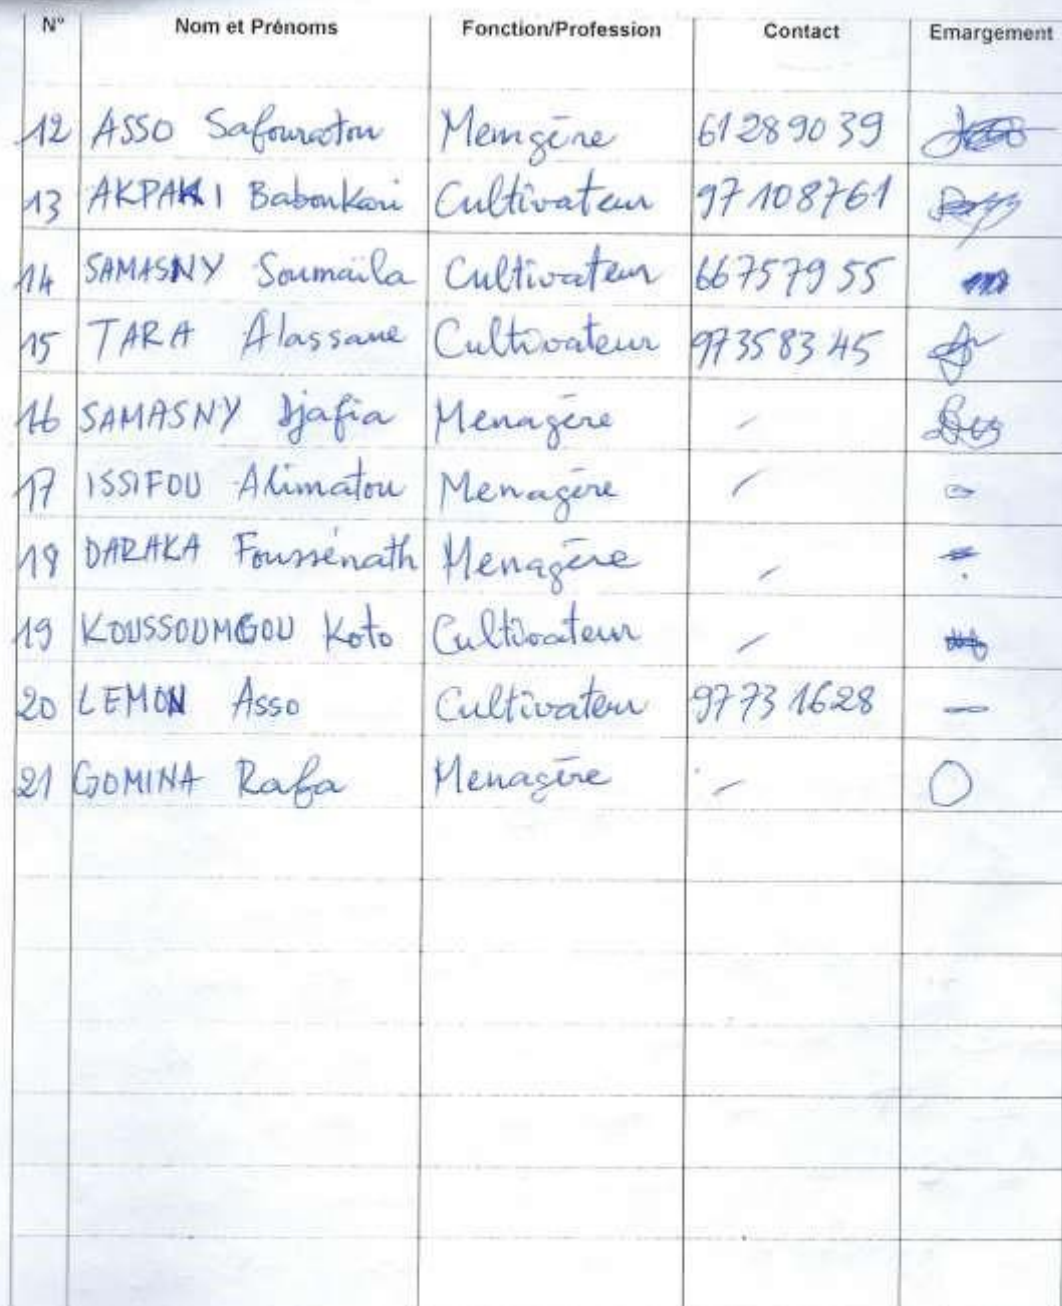 N° Nom et Prénoms Fonction/Profession Contact Emargement
12 ASSO Safouratou Memgère 61 28 90 39
13 AKPAKI Babonkari Cultivateur 97 10 87 61
14 SAMASNY Soumaïla Cultivateur 66 75 79 55
15 TARA Alassane Cultivateur 97 35 83 45
16 SAMASNY Djafia Menagère -
17 ISSIFOU Alimatou Menagère -
18 DARAKA Foussénath Menagère -
19 KOUSSOUMGOU Koto Cultivateur -
20 LEMON Asso Cultivateur 97 73 16 28
21 GOMINA Rafa Menagère -